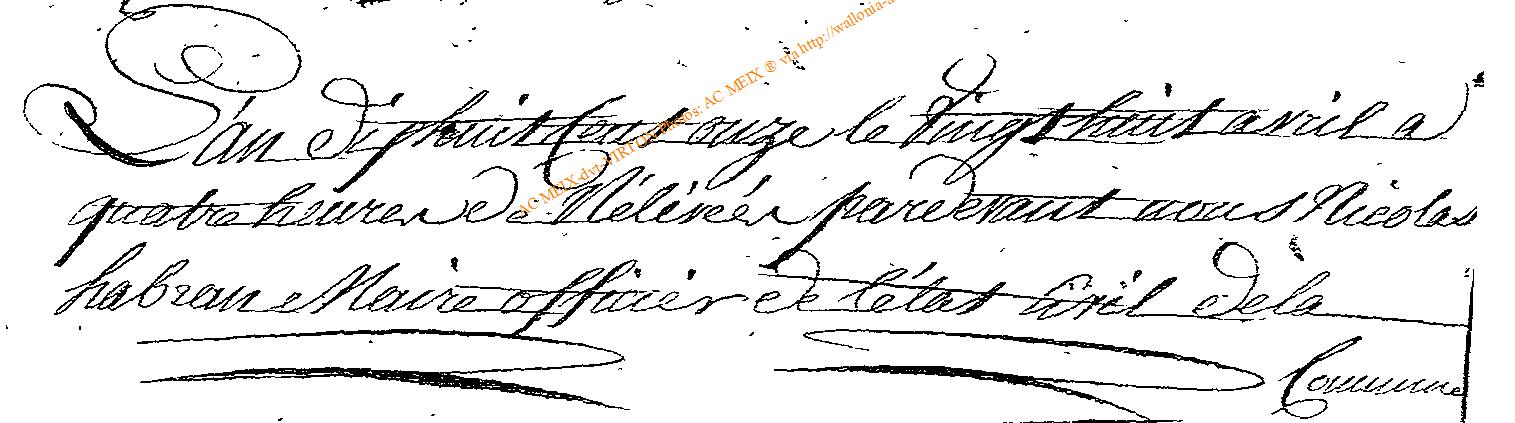 L'an diphuit Cent onze le vingt huit avril a
quatre heures de Rélévée pardevant nous Nicolas
habran Maire officier de l'état civil de la
Commune
AC MEIX-dvt-VIRTON Photos: AC MEIX ® via http://wallonia-a